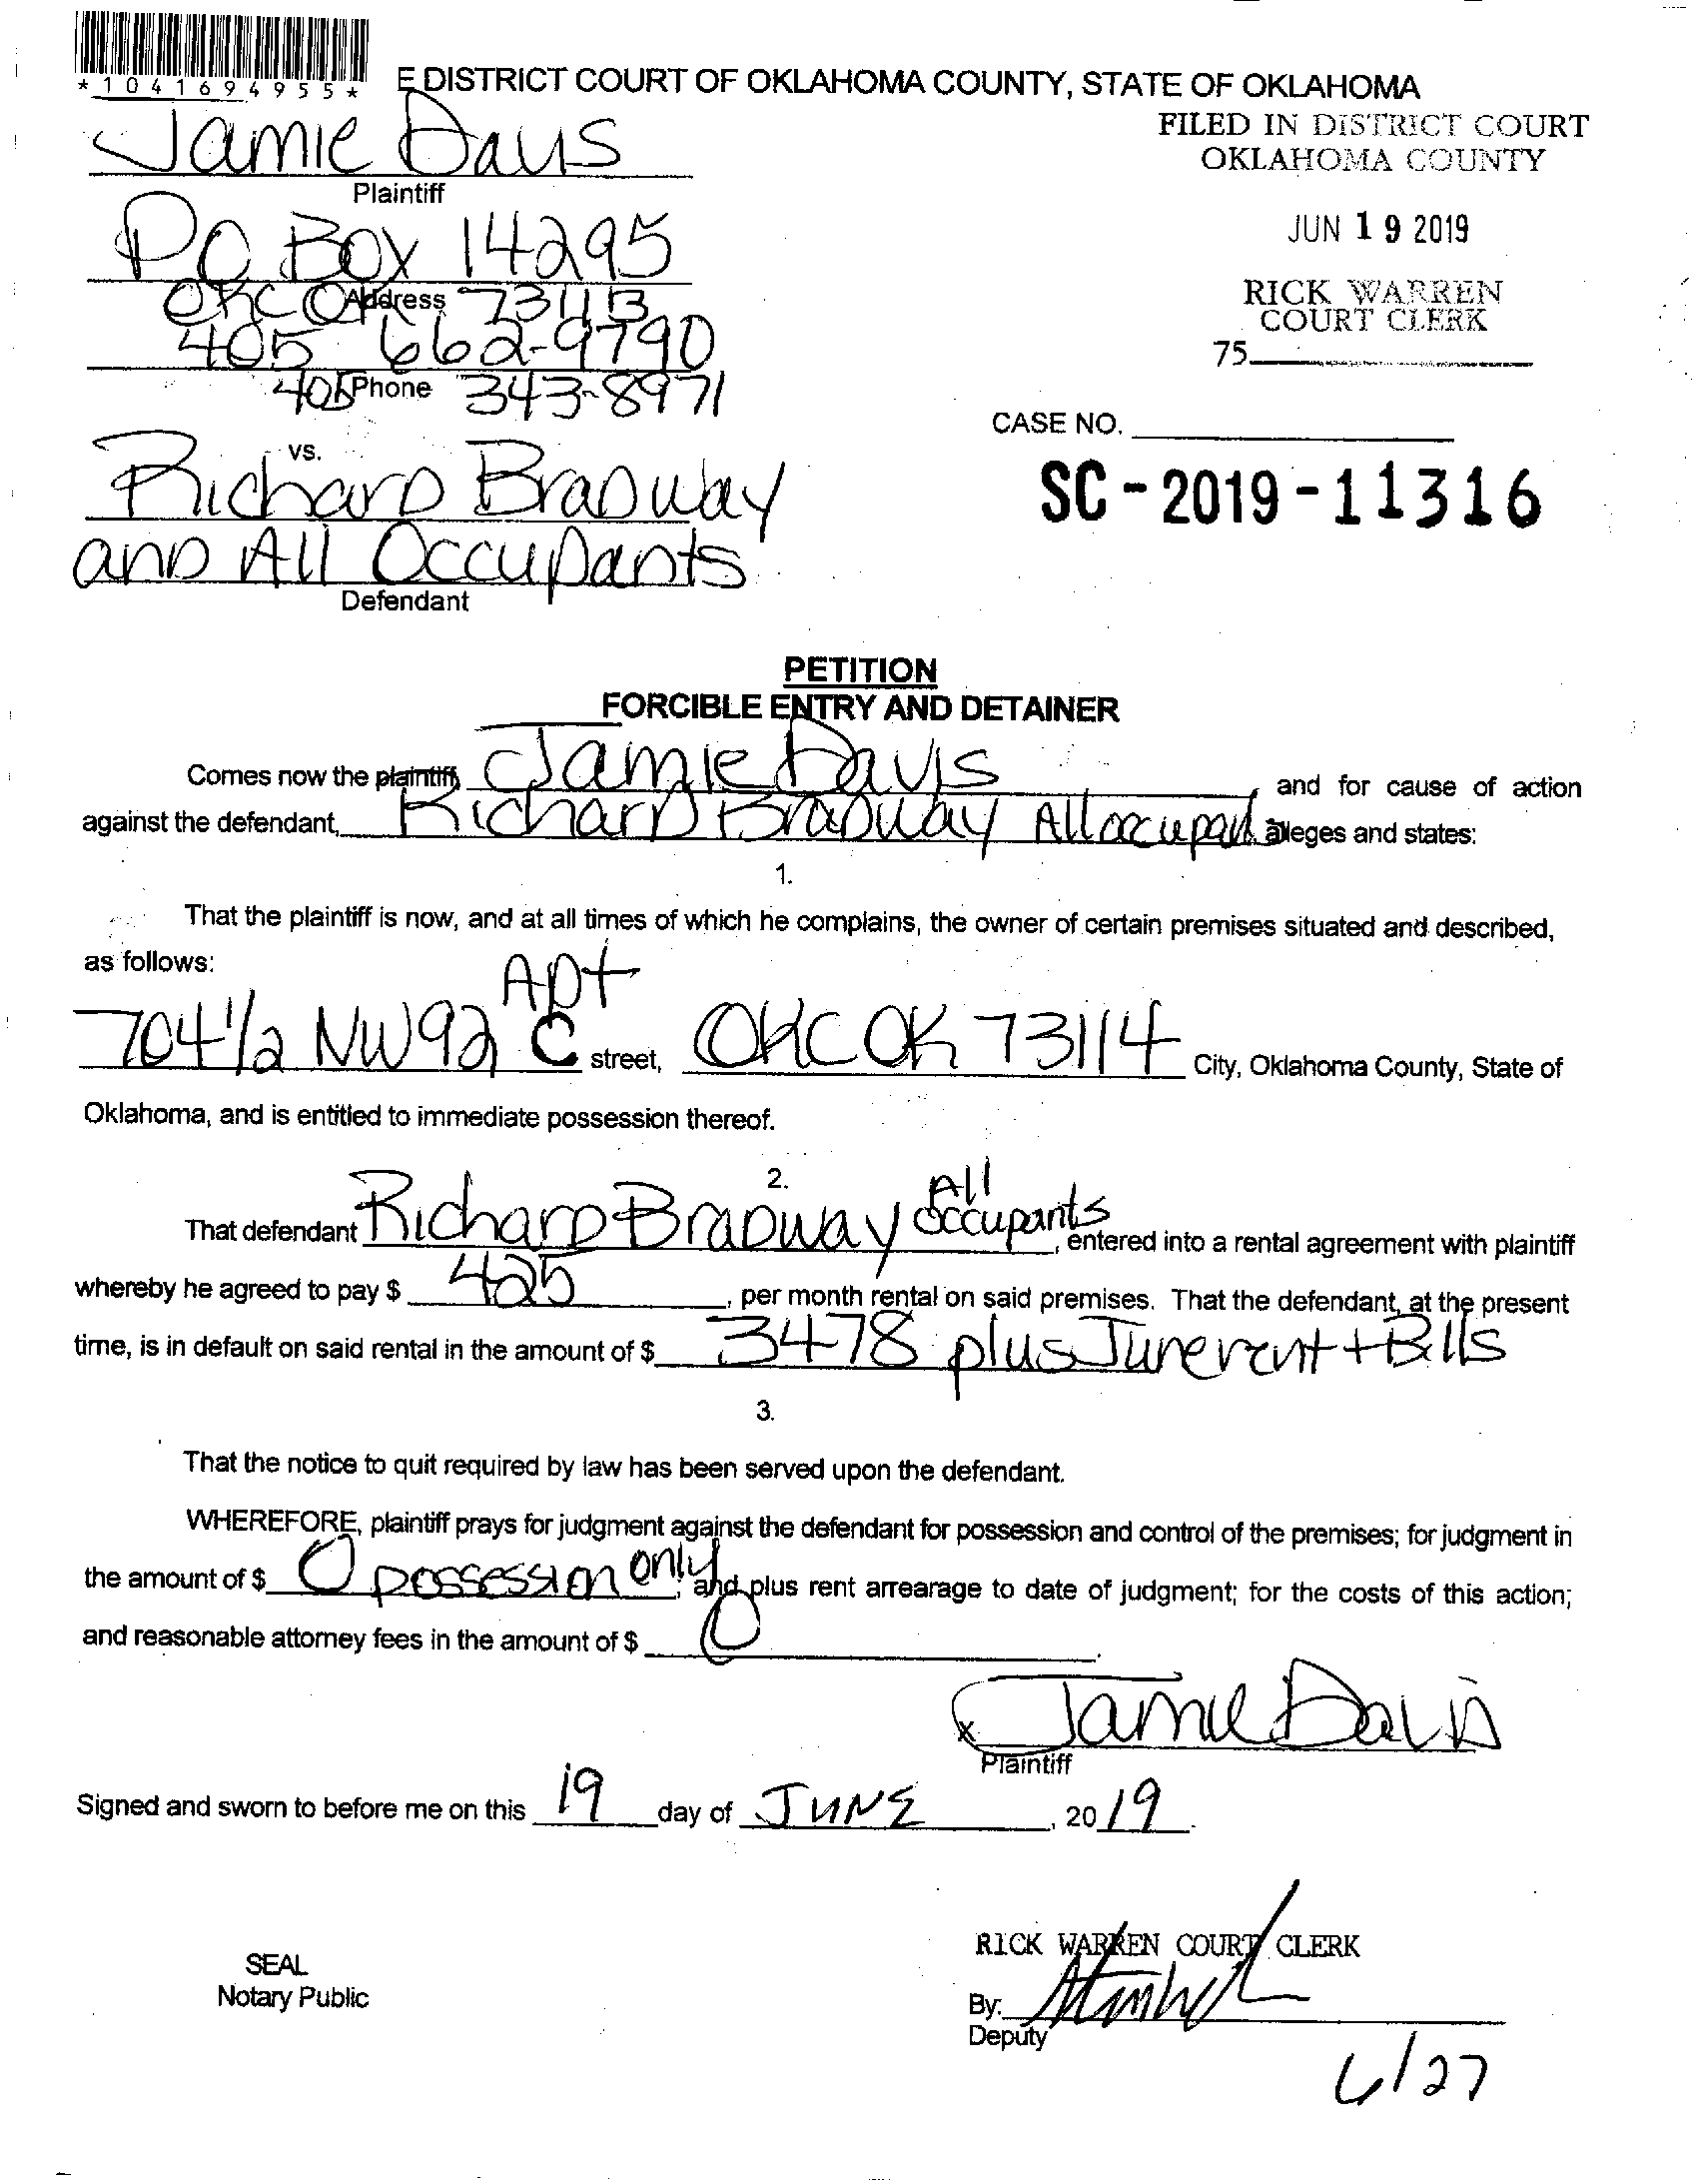 *1041694955*
E DISTRICT COURT OF OKLAHOMA COUNTY, STATE OF OKLAHOMA
Jamie Davis
Plaintiff
FILED IN DISTRICT COURT
OKLAHOMA COUNTY
JUN 19 2019
RICK WARREN
COURT CLERK
75
PO Box 14295
OKC OK 73113
Address
405 662-9790
405 343-8971
Phone
CASE NO.
SC-2019-11316
vs.
Richard Bradway
and All Occupants
Defendant
PETITION
FORCIBLE ENTRY AND DETAINER
Comes now the plaintiff, Jamie Davis, and for cause of action
against the defendant, Richard Bradway All occupant alleges and states:
1.
That the plaintiff is now, and at all times of which he complains, the owner of certain premises situated and described,
as follows:
704 1/2 NW 92 Apt C street, OKC OK 73114 City, Oklahoma County, State of
Oklahoma, and is entitled to immediate possession thereof.
2.
That defendant Richard Bradway All occupants, entered into a rental agreement with plaintiff
whereby he agreed to pay $ 425, per month rental on said premises. That the defendant, at the present
time, is in default on said rental in the amount of $ 3478 plus June rent + Bills
3.
That the notice to quit required by law has been served upon the defendant.
WHEREFORE, plaintiff prays for judgment against the defendant for possession and control of the premises; for judgment in
the amount of $ 0 possession only; and plus rent arrearage to date of judgment; for the costs of this action;
and reasonable attorney fees in the amount of $ 0.
x Jamie Davis
Plaintiff
Signed and sworn to before me on this 19 day of JUNE, 2019.
RICK WARREN COURT CLERK
SEAL
Notary Public
By:
Deputy
6/27